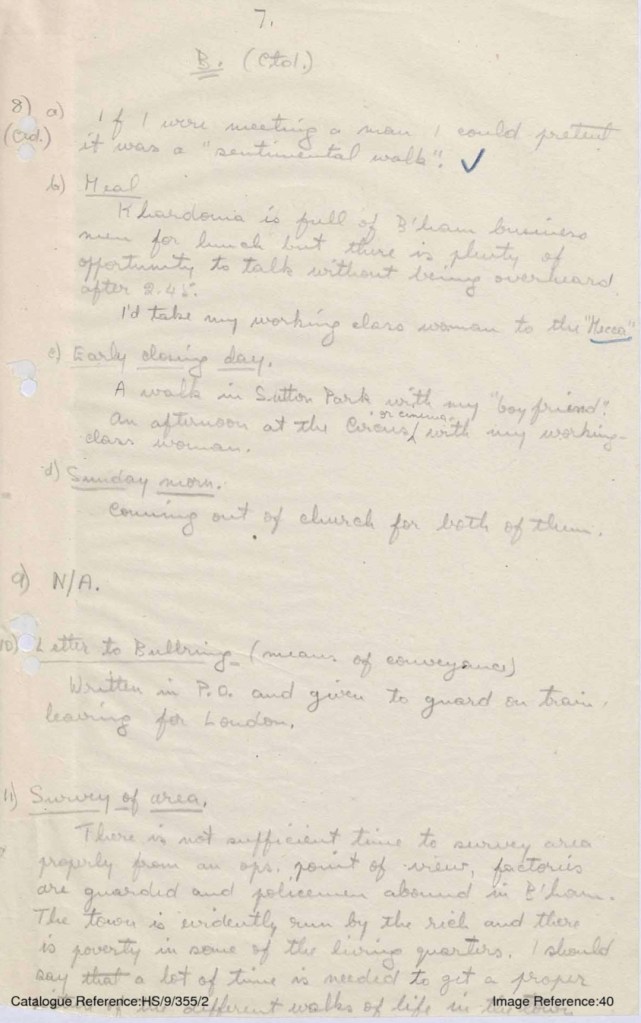 7.
B. (Ctd.)
8) a) If I were meeting a man I could pretend
(Ctd.) it was a "sentimental walk". ✓
b) Meal
Khardomia is full of B'ham business
men for lunch but there is plenty of
opportunity to talk without being overheard
after 2.45.
I'd take my working class woman to the "Mecca"
c) Early closing day.
A walk in Sutton Park with my "boy friend".
or cinema
An afternoon at the Circus/ with my working-
class woman.
d) Sunday morn.
Coming out of church for both of them.
9) N/A.
10) Letter to Bullring (means of conveyance)
Written in P.O. and given to guard on train
leaving for London.
11) Survey of area.
There is not sufficient time to survey area
properly from an ops. point of view, factories
are guarded and policemen abound in B'ham.
The town is evidently run by the rich and there
is poverty in some of the living quarters. I should
say that a lot of time is needed to get a proper
of the different walks of life in the town
Catalogue Reference:HS/9/355/2 Image Reference:40